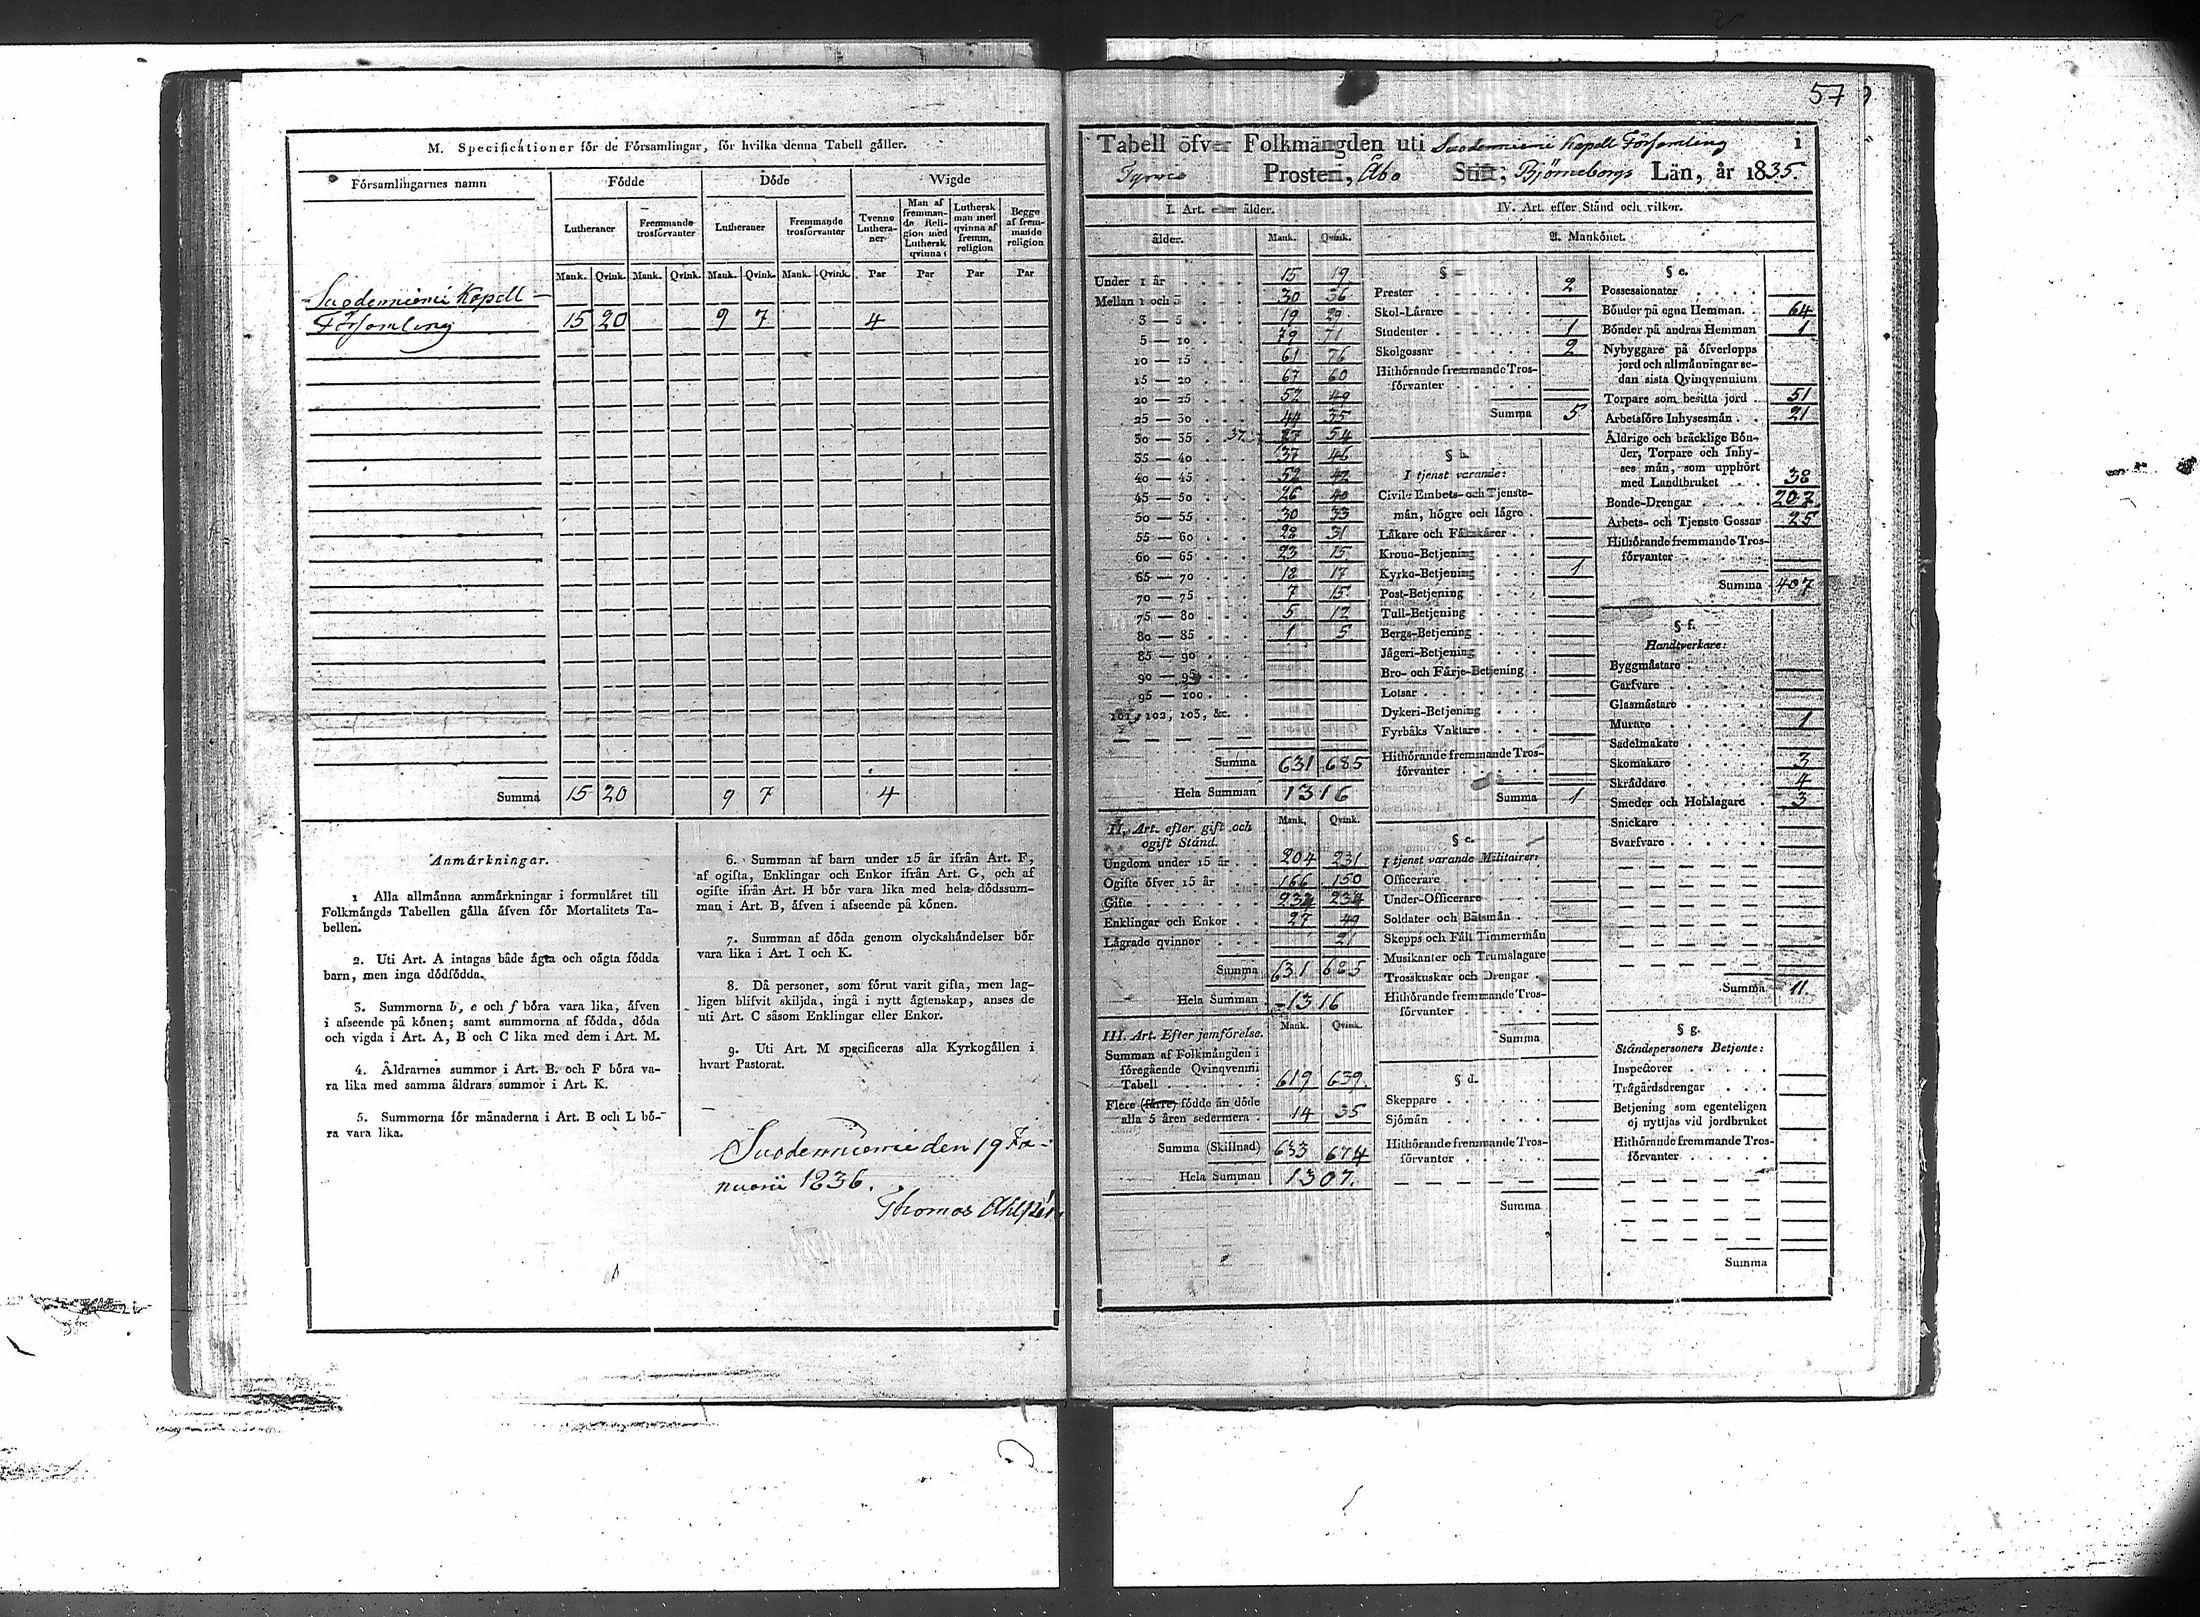 57
M. Specificationer för de Församlingar, för hvilka denna Tabell gäller.
Församlingarnes namn
Födde
Döde
Wigde
Lutheraner
Fremmande trosförvanter
Lutheraner
Fremmande trosförvanter
Tvenne Luthera-ner
Man af fremman-de Reli-gion med Luthersk qvinna
Luthersk man med qvinna af fremm. religion
Begge af frem-mande religion
Mank. Qvink. Mank. Qvink. Mank. Qvink. Mank. Qvink. Par Par Par Par
Suodenniemi Kapell
Församling 15 20 9 7 4
Summa 15 20 9 7 4
Anmärkningar.
1 Alla allmänna anmärkningar i formuläret till
Folkmängds Tabellen gälla äfven för Mortalitets Ta-
bellen.
2. Uti Art. A intagas både ägta och oägta födda
barn, men inga dödfödda.
3. Summorna b, e och f böra vara lika, äfven
i afseende på könen; samt summorna af födda, döda
och vigda i Art. A, B och C lika med dem i Art. M.
4. Äldrarnes summor i Art. B. och F böra va-
ra lika med samma åldrars summor i Art. K.
5. Summorna för månaderna i Art. B och L bö-
ra vara lika.
6. Summan af barn under 15 år ifrån Art. F,
af ogifta, Enklingar och Enkor ifrån Art. G, och af
ogifte ifrån Art. H bör vara lika med hela dödssum-
man i Art. B, äfven i afseende på könen.
7. Summan af döda genom olyckshändelser bör
vara lika i Art. I och K.
8. Då personer, som förut varit gifta, men lag-
ligen blifvit skiljda, ingå i nytt ägtenskap, anses de
uti Art. C såsom Enklingar eller Enkor.
9. Uti Art. M specificeras alla Kyrkogällen i
hvart Pastorat.
Suodenniemi den 19 Ja-
nuarii 1836.
Thomas
Tabell öfver Folkmängden uti Suodenniemi Kapell Församling i
Tyrvis Prosteri, Åbo Stift, Björneborgs Län, år 1835.
I. Art. efter ålder.
ålder. Mank. Qvink.
Under 1 år 15 19
Mellan 1 och 3 30 36
3 — 5 19 29
5 — 10 79 71
10 — 15 61 76
15 — 20 67 60
20 — 25 52 49
25 — 30 44 35
30 — 35 37 27 54
35 — 40 37 46
40 — 45 52 42
45 — 50 26 40
50 — 55 30 33
55 — 60 28 31
60 — 65 23 15
65 — 70 18 17
70 — 75 7 15
75 — 80 5 12
80 — 85 1 5
85 — 90
90 — 95
95 — 100
101, 102, 103, &c.
Summa 631 685
Hela Summan 1316
II. Art. efter gift och
ogift Stånd.
Mank. Qvink.
Ungdom under 15 år 204 231
Ogifte öfver 15 år 166 150
Gifte 234 234
Enklingar och Enkor 27 49
Lägrade qvinnor 21
Summa 631 685
Hela Summan 1316
III. Art. Efter jemförelse. Mank. Qvink.
Summan af Folkmängden i
föregående Qvinqvennii
Tabell 619 639
Flere (färre) födde än döde
alla 5 åren sedermera 14 35
Summa (Skillnad) 633 674
Hela Summan 1307.
IV. Art. efter Stånd och vilkor.
A. Mankönet.
§ a
Prester 2
Skol-Lärare
Studenter 1
Skolgossar 2
Hithörande fremmande Tros-
förvanter
Summa 5
§ b.
I tjenst varande:
Civile Embets- och Tjenste-
män, högre och lägre
Läkare och Fältskärer
Krono-Betjening
Kyrko-Betjening 1
Post-Betjening
Tull-Betjening
Bergs-Betjening
Jägeri-Betjening
Bro- och Färje-Betjening
Lotsar
Dykeri-Betjening
Fyrbåks Vaktare
Hithörande fremmande Tros-
förvanter
Summa 1
§ c.
I tjenst varande Militairer:
Officerare
Under-Officerare
Soldater och Båtsmän
Skepps och Fält Timmermän
Musikanter och Trumslagare
Trosskuskar och Drengar
Hithörande fremmande Tros-
förvanter
Summa
§ d.
Skeppare
Sjömän
Hithörande fremmande Tros-
förvanter
Summa
§ e.
Possessionater
Bönder på egna Hemman 64
Bönder på andras Hemman 1
Nybyggare på öfverlopps
jord och allmänningar se-
dan sista Qvinqvennium
Torpare som besitta jord 51
Arbetsföre Inhysesmän 21
Äldrige och bräcklige Bön-
der, Torpare och Inhy-
ses män, som upphört
med Landtbruket 38
Bonde-Drengar 207
Arbets- och Tjenste Gossar 25
Hithörande fremmande Tros-
förvanter
Summa 407
§ f.
Handtverkare:
Byggmästare
Garfvare
Glasmästare
Murare 1
Sadelmakare
Skomakare 3
Skräddare 4
Smeder och Hofslagare 3
Snickare
Svarfvare
Summa 11
§ g.
Ståndspersoners Betjente:
Inspector
Trägårdsdrengar
Betjening som egenteligen
ej nyttjas vid jordbruket
Hithörande fremmande Tros-
förvanter
Summa